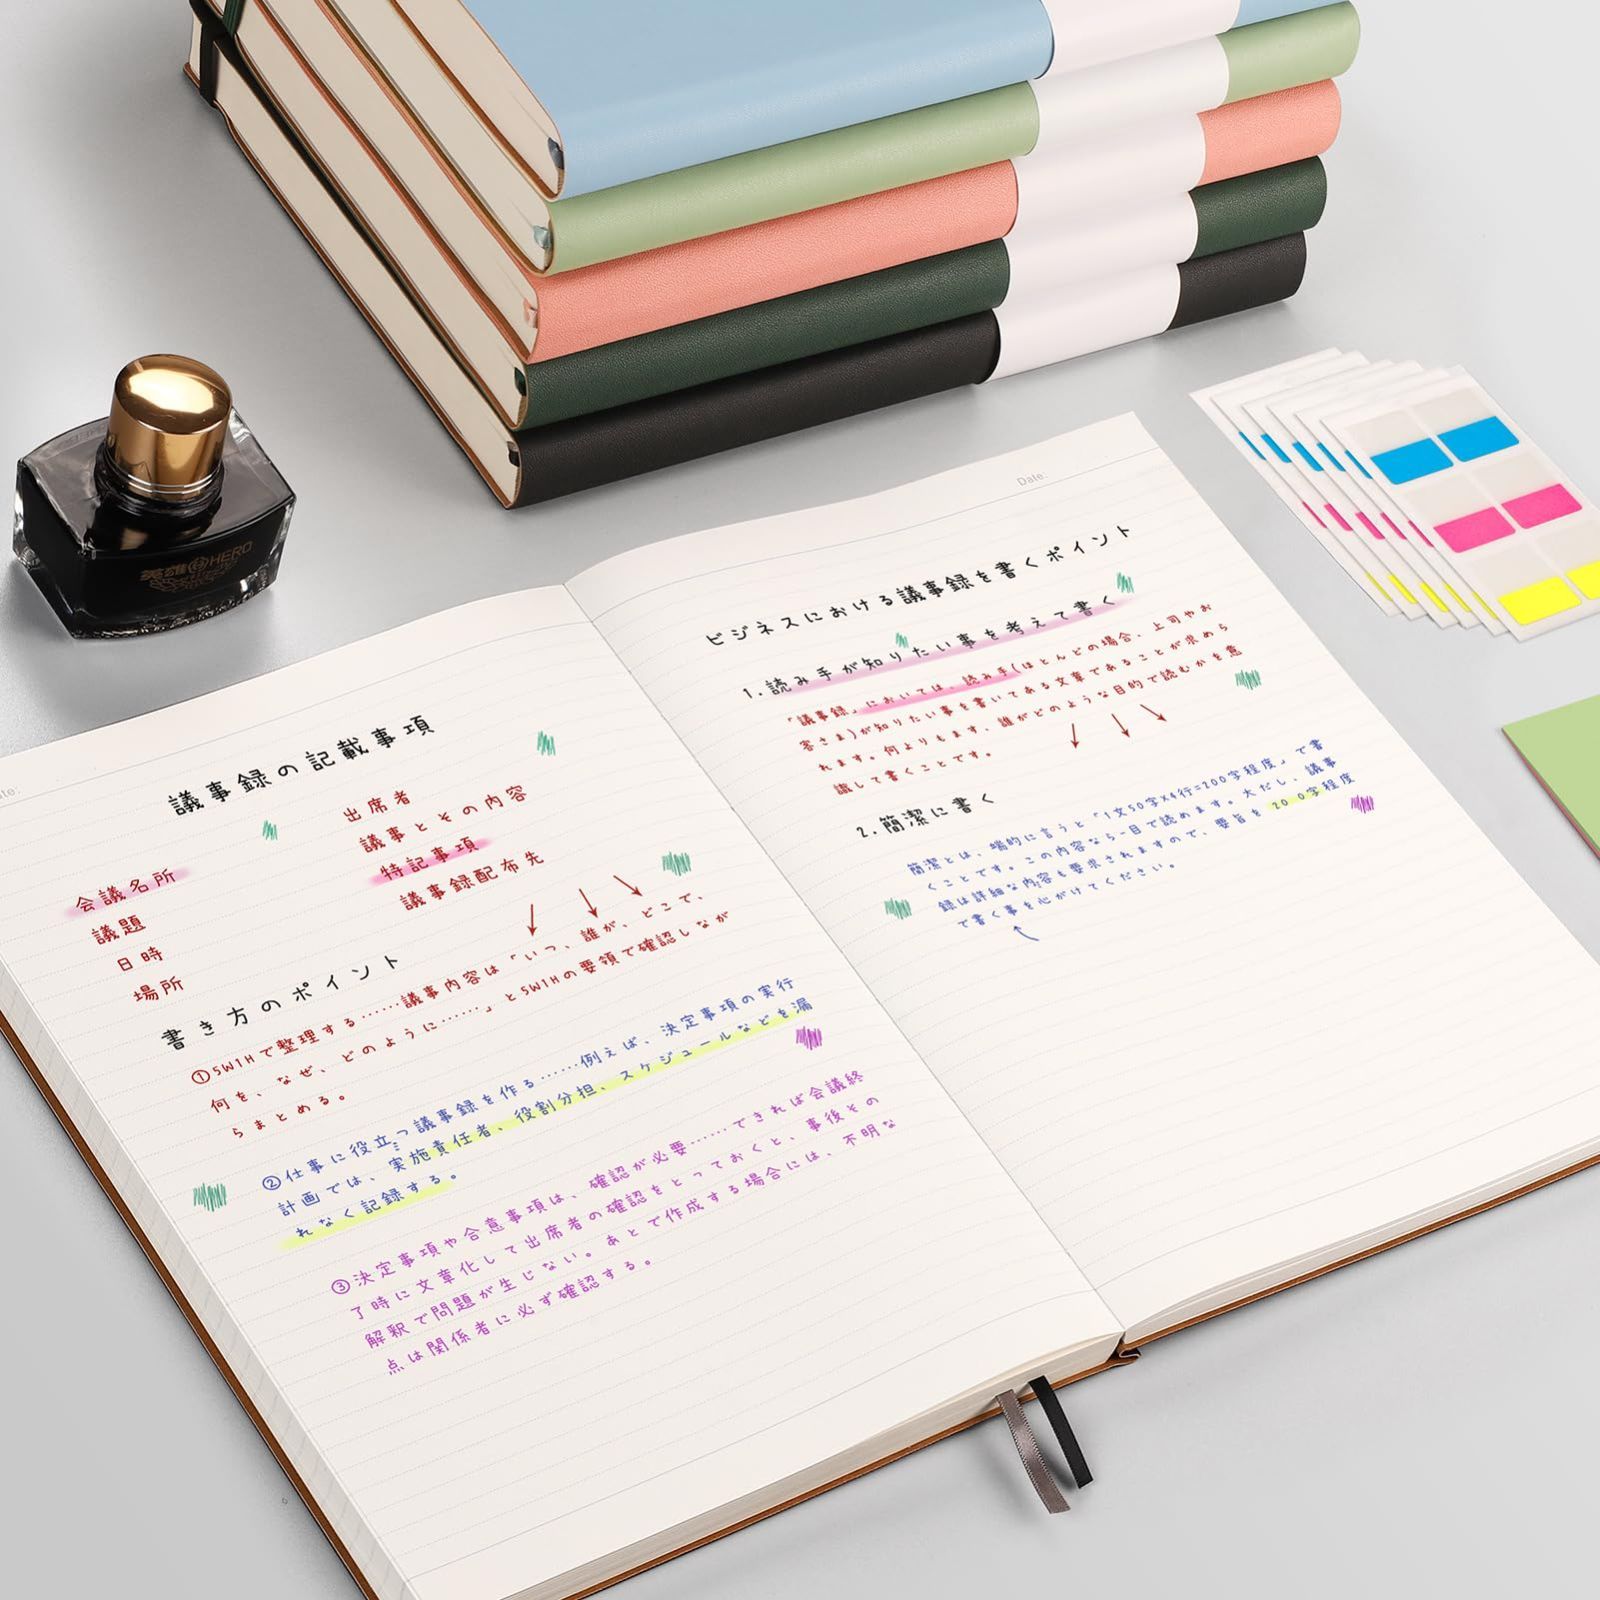 英雄 HERO
Date:
議事録の記載事項
会議名所
議題
日時
場所
出席者
議事とその内容
特記事項
議事録配布先
書き方のポイント
①5W1Hで整理する……議事内容は「いつ、誰が、どこで、
何を、なぜ、どのように……」と5W1Hの要領で確認しなが
らまとめる。
②仕事に役立つ議事録を作る……例えば、決定事項の実行
計画では、実施責任者、役割分担、スケジュールなどを漏
れなく記録する。
③決定事項や合意事項は、確認が必要……できれば会議終
了時に文章化して出席者の確認をとっておくと、事後その
解釈で問題が生じない。あとで作成する場合には、不明な
点は関係者に必ず確認する。
Date:
ビジネスにおける議事録を書くポイント
1.読み手が知りたい事を考えて書く
「議事録」においては、読み手(ほとんどの場合、上司やお
客さま)が知りたい事を書いてある文章であることが求めら
れます。何よりもまず、誰がどのような目的で読むかを意
識して書くことです。
2.簡潔に書く
簡潔とは、端的に言うと「1文50字X4行=200字程度」で書
くことです。この内容なら一目で読めます。大だし、議事
録は詳細な内容も要求されますので、要旨を200字程度
で書く事を心がけてください。